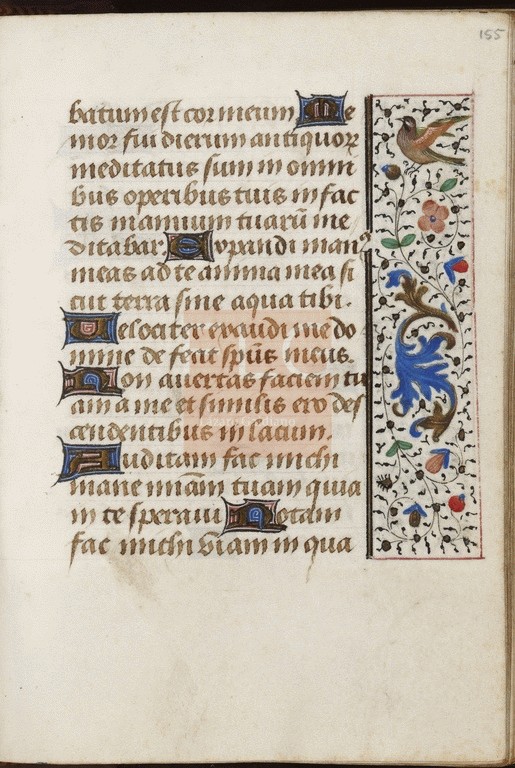 155
batum est cor meum Me
mor fui dierum antiquorꝝ
meditatus sum in omni
bus operibus tuis in fac
tis manuum tuarū me
ditabar. Expandi man⁹
meas ad te anima mea si
cut terra sine aqua tibi.
Velociter exaudi me do
mine defecit spūs meus.
Non auertas faciem tu
am a me et similis ero des
cendentibus in lacum.
Auditam fac michi
mane miām tuam quia
in te speraui Notam
fac michi viam in qua